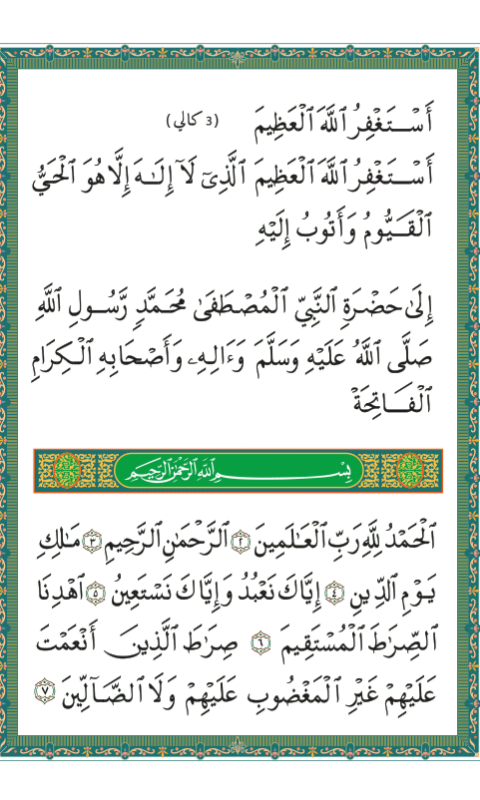 أَسْتَغْفِرُ ٱللَّهَ ٱلْعَظِيمَ (3 كالي)
أَسْتَغْفِرُ ٱللَّهَ ٱلْعَظِيمَ ٱلَّذِىٓ لَآ إِلَـٰهَ إِلَّا هُوَ ٱلْحَىُّ
ٱلْقَيُّومُ وَأَتُوبُ إِلَيْهِ
إِلَىٰ حَضْرَةِ ٱلنَّبِيِّ ٱلْمُصْطَفَىٰ مُحَمَّدٍ رَّسُولِ ٱللَّهِ
صَلَّى ٱللَّهُ عَلَيْهِ وَسَلَّمَ وَءَالِهِۦ وَأَصْحَابِهِ ٱلْكِرَامِ
ٱلْفَاتِحَةْ
بِسْمِ ٱللَّهِ ٱلرَّحْمَٰنِ ٱلرَّحِيمِ
ٱلْحَمْدُ لِلَّهِ رَبِّ ٱلْعَـٰلَمِينَ ٢ ٱلرَّحْمَـٰنِ ٱلرَّحِيمِ ٣ مَـٰلِكِ
يَوْمِ ٱلدِّينِ ٤ إِيَّاكَ نَعْبُدُ وَإِيَّاكَ نَسْتَعِينُ ٥ ٱهْدِنَا
ٱلصِّرَٰطَ ٱلْمُسْتَقِيمَ ٦ صِرَٰطَ ٱلَّذِينَ أَنْعَمْتَ
عَلَيْهِمْ غَيْرِ ٱلْمَغْضُوبِ عَلَيْهِمْ وَلَا ٱلضَّآلِّينَ ٧